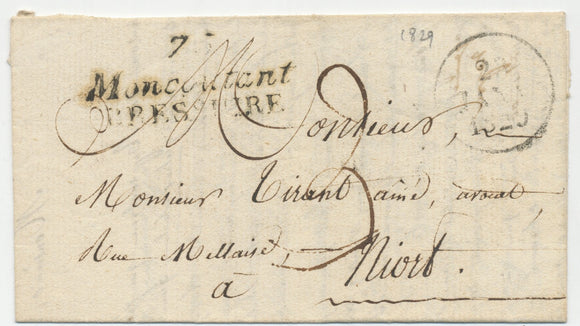 1829
7
Moncoutant
BRESSUIRE
2
1829
Monsieur,
3
Monsieur Tirant ainé, avocat,
Rue Mellaise,
à Niort.